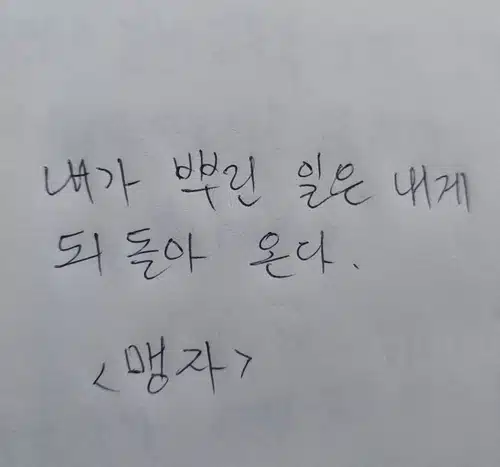 내가 뿌린 일은 내게
되돌아 온다.
<맹자>